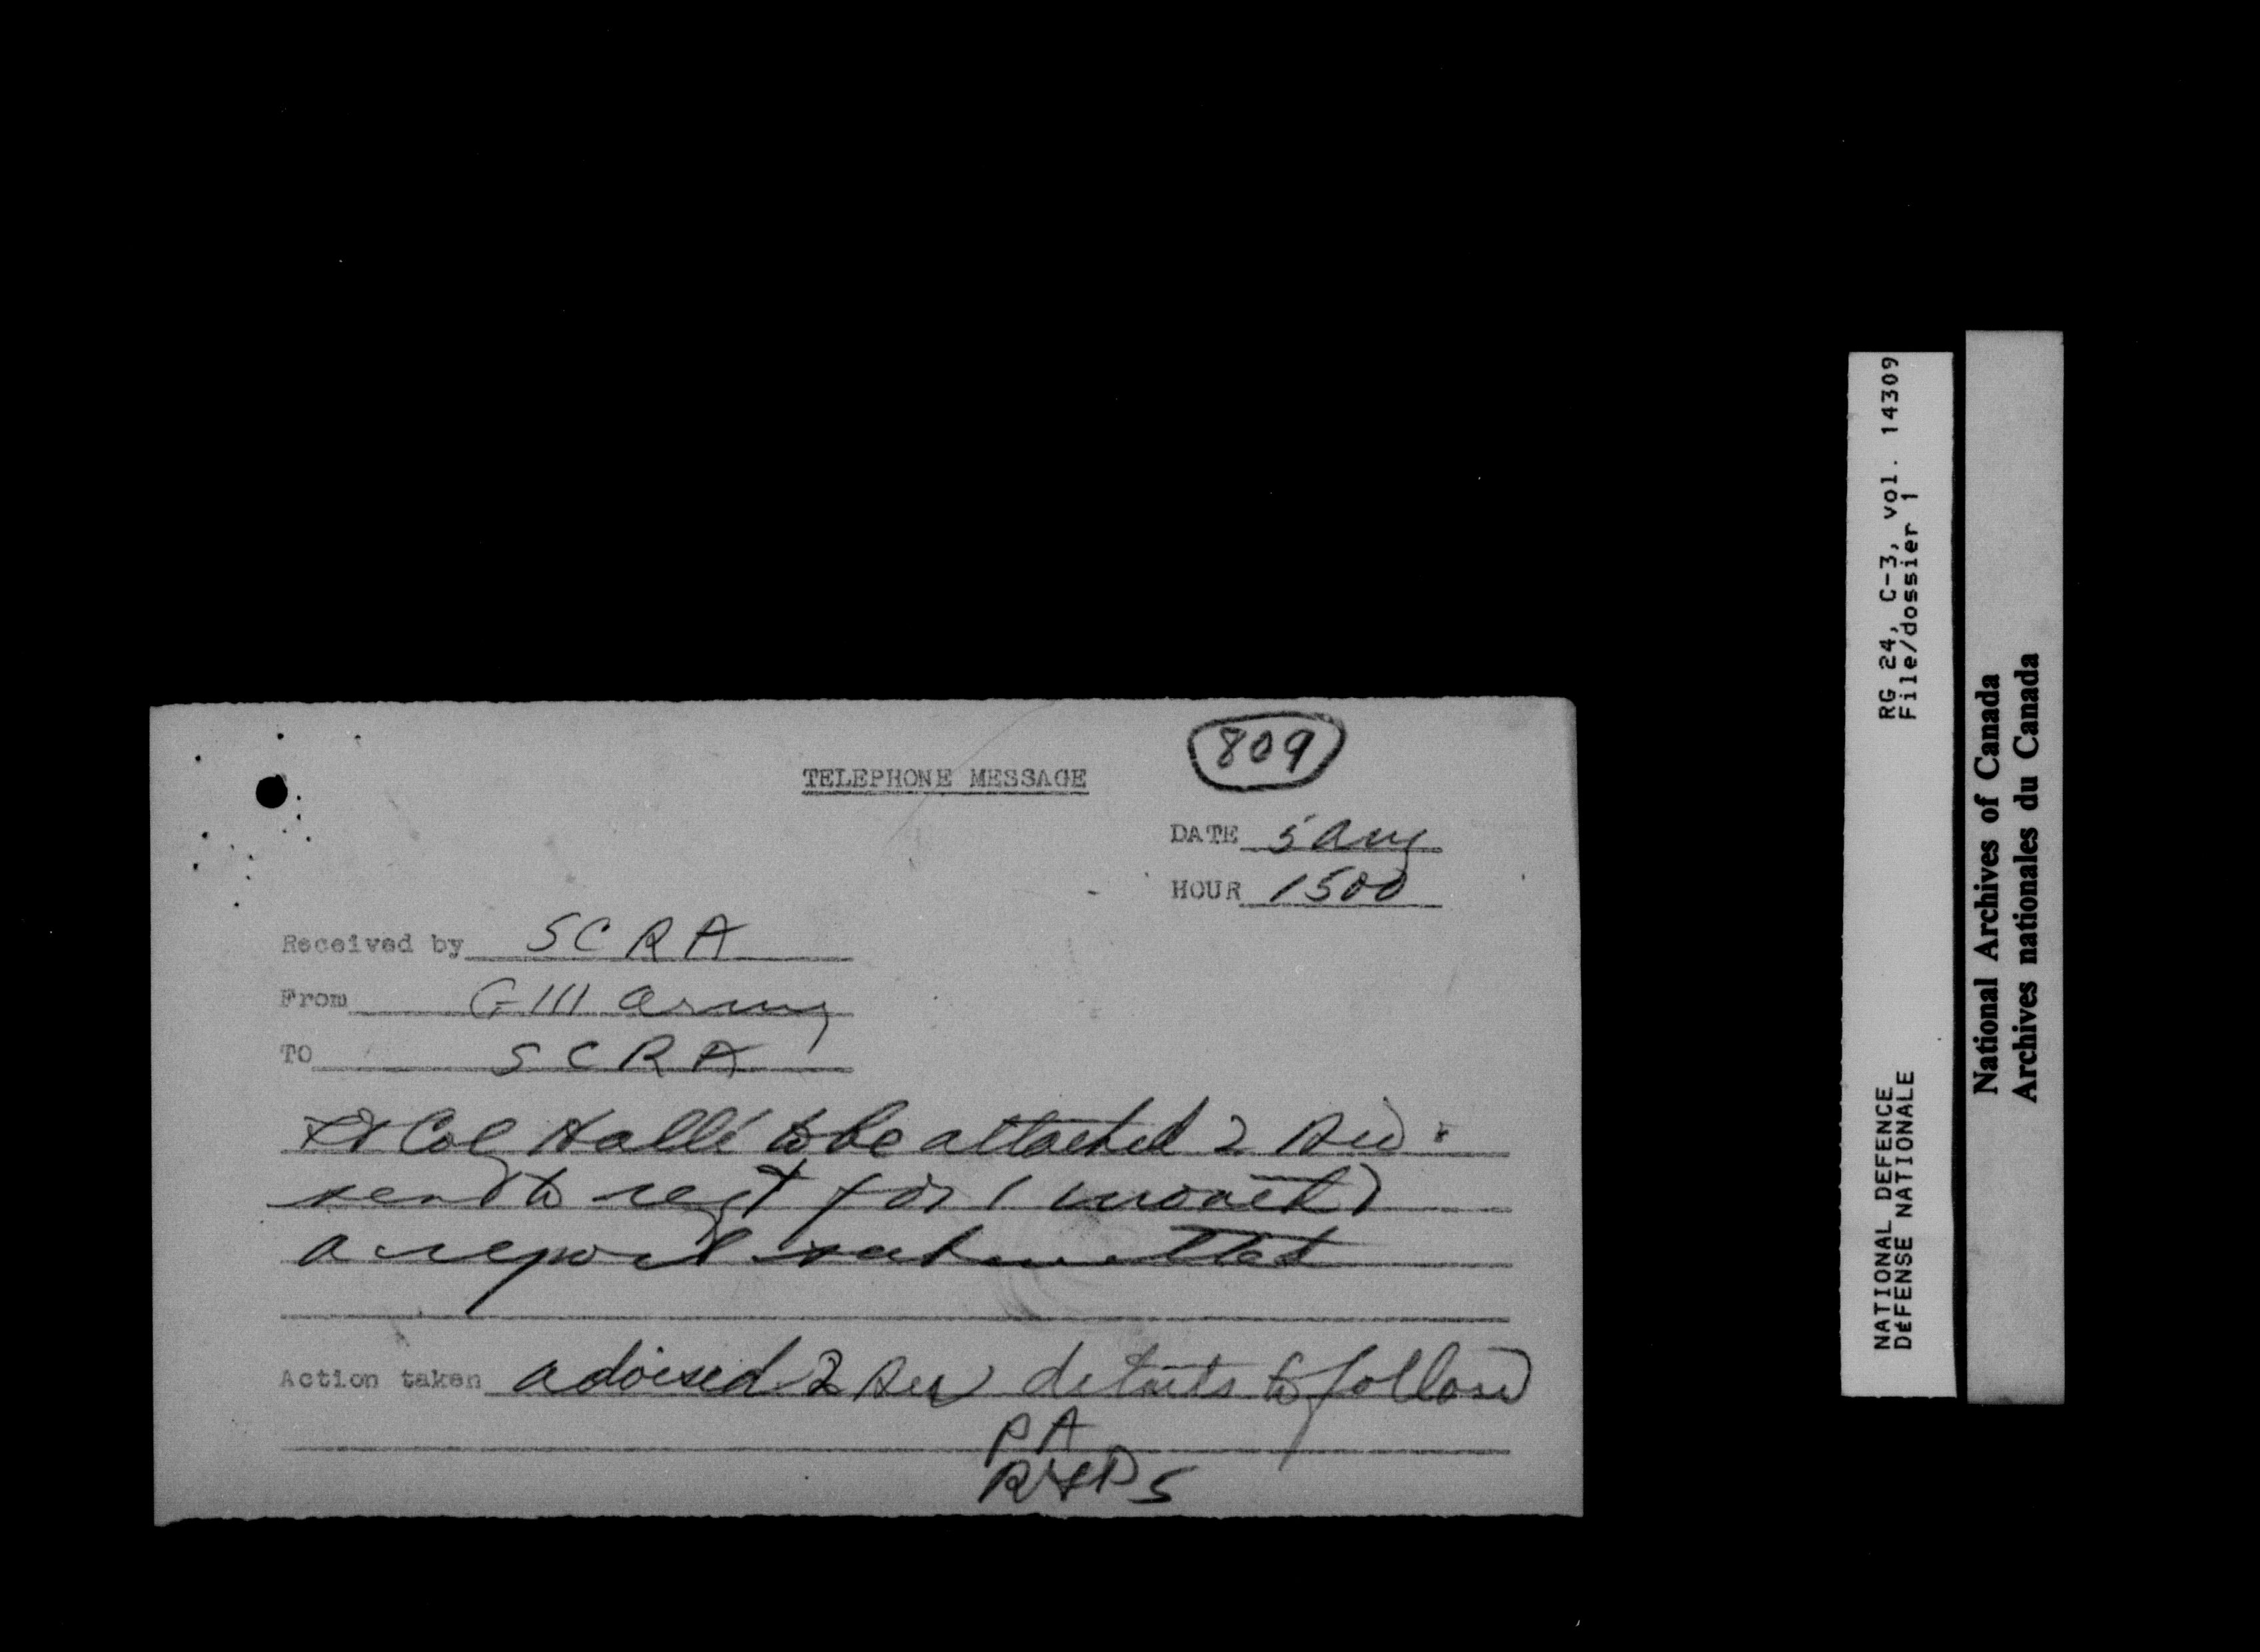 TELEPHONE MESSAGE
809
DATE 5 Aug
HOUR 1500
Received by SCRA
From G III Army
TO SCRA
Lt Col Hallé to be attached 2 Div
send to regt for 1 month
a report submitted
Action taken advised 2 Div details to follow
PA
RG 24, C-3, vol. 14309
File/dossier 1
NATIONAL DEFENCE
DÉFENSE NATIONALE
National Archives of Canada
Archives nationales du Canada